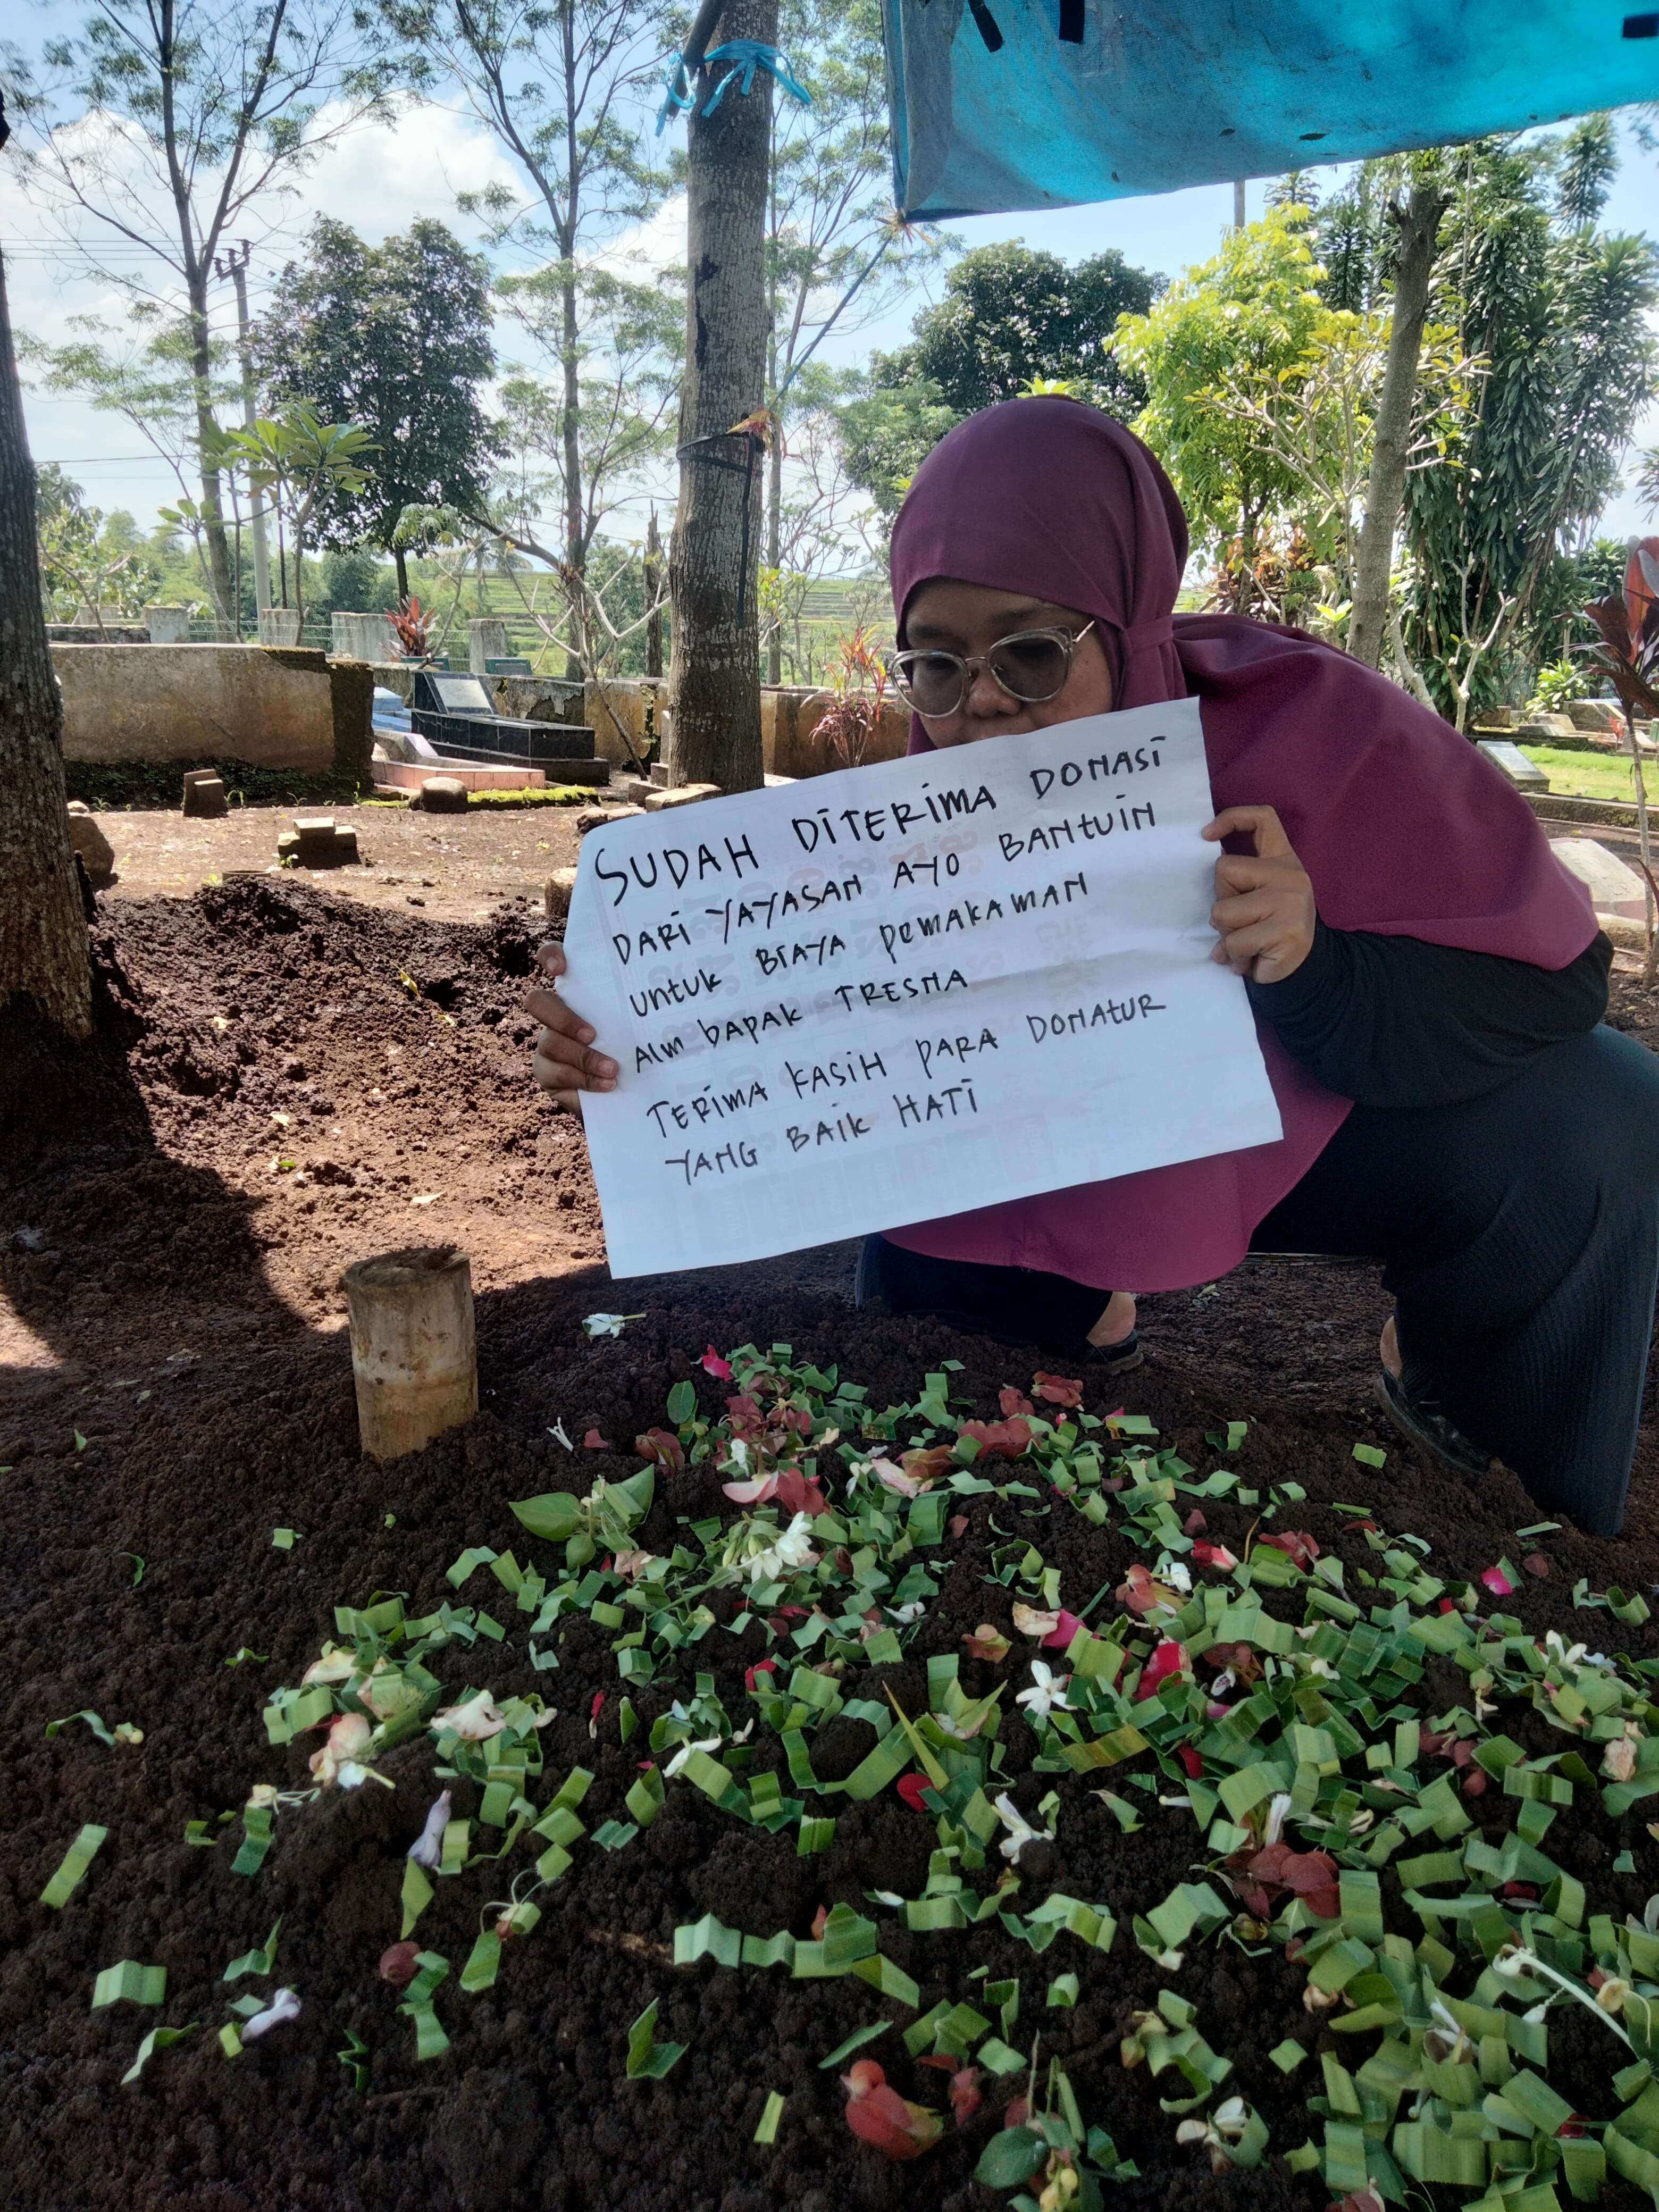 SUDAH DITERIMA DONASI
DARI YAYASAN AYO BANTUIN
UNTUK BIAYA PEMAKAMAN
ALM BAPAK TRESNA
TERIMA KASIH PARA DONATUR
YANG BAIK HATI